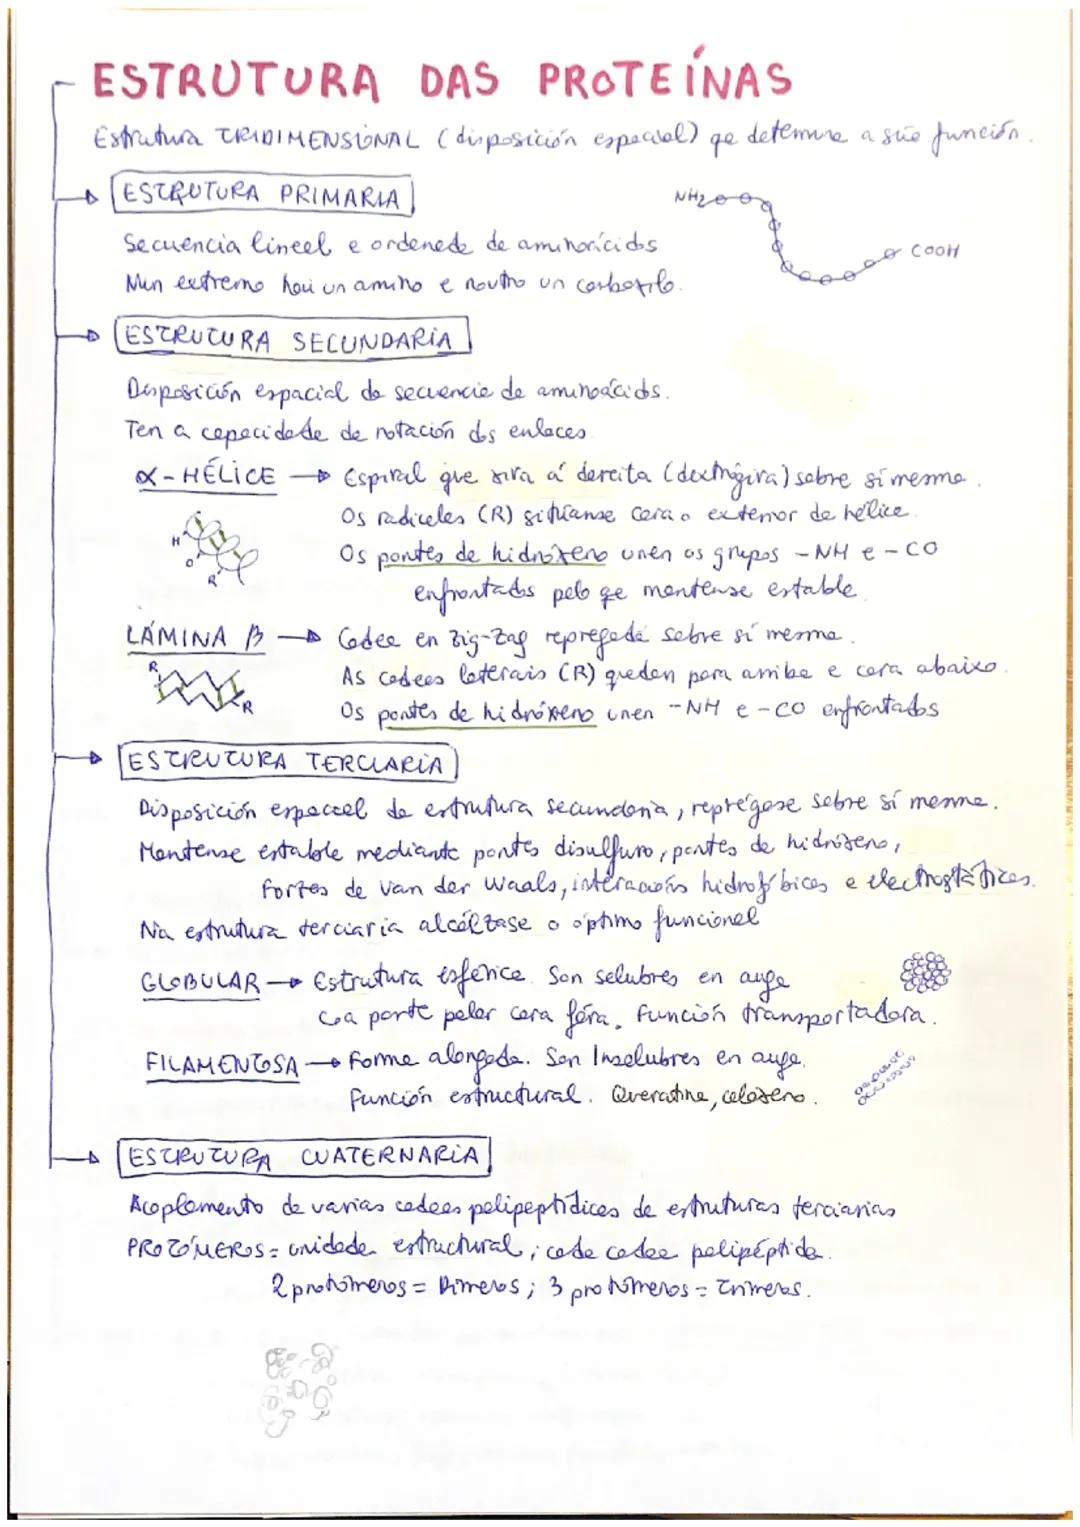 ESTRUTURA DAS PROTEÍNAS
Estrutura TRIDIMENSIONAL (disposición espacial) qe determina a súa función.
ESTRUTURA PRIMARIA
NH2
COOH
Secuencia lineal e ordenada de aminoácidos
Nun extremo hai un amino e noutro un carboxilo.
ESTRUTURA SECUNDARIA
Disposición espacial da secuencia de aminoácidos.
Ten a capacidade de rotación dos enlaces
α-HÉLICE → Espiral que xira á dereita (dextróxira) sobre si mesma.
Os radicales (R) sitúanse cara o exterior da hélice.
H
O
R
Os pontes de hidróxeno unen os grupos -NH e -CO
enfrontados polo qe mantense estable
LÁMINA β → Cadea en zig-zag repregada sobre sí mesma.
R
R
As cadeas laterais (R) quedan para arriba e cara abaixo.
Os pontes de hidróxeno unen -NH e -CO enfrontados
ESTRUTURA TERCIARIA
Disposición espacial da estrutura secundaria, reprégase sobre sí mesma.
Mantense estable mediante pontes disulfuro, pontes de hidróxeno,
fortes de Van der Waals, interaccións hidrofóbicas e electrostáticas.
Na estrutura terciaria alcánzase o óptimo funcional
GLOBULAR → Estrutura esférica. Son solubres en auga
coa parte polar cara fóra. Función transportadora.
FILAMENTOSA → Forma alongada. Son Insolubres en auga.
Función estructural. Queratina, coláxeno.
ESTRUTURA CUATERNARIA
Acoplamento de varias cadeas polipeptídicas de estruturas terciarias
PROTÓMEROS = unidade estructural, cada cadea polipéptida.
2 protómeros = Dímeros; 3 protómeros = Trímeros.